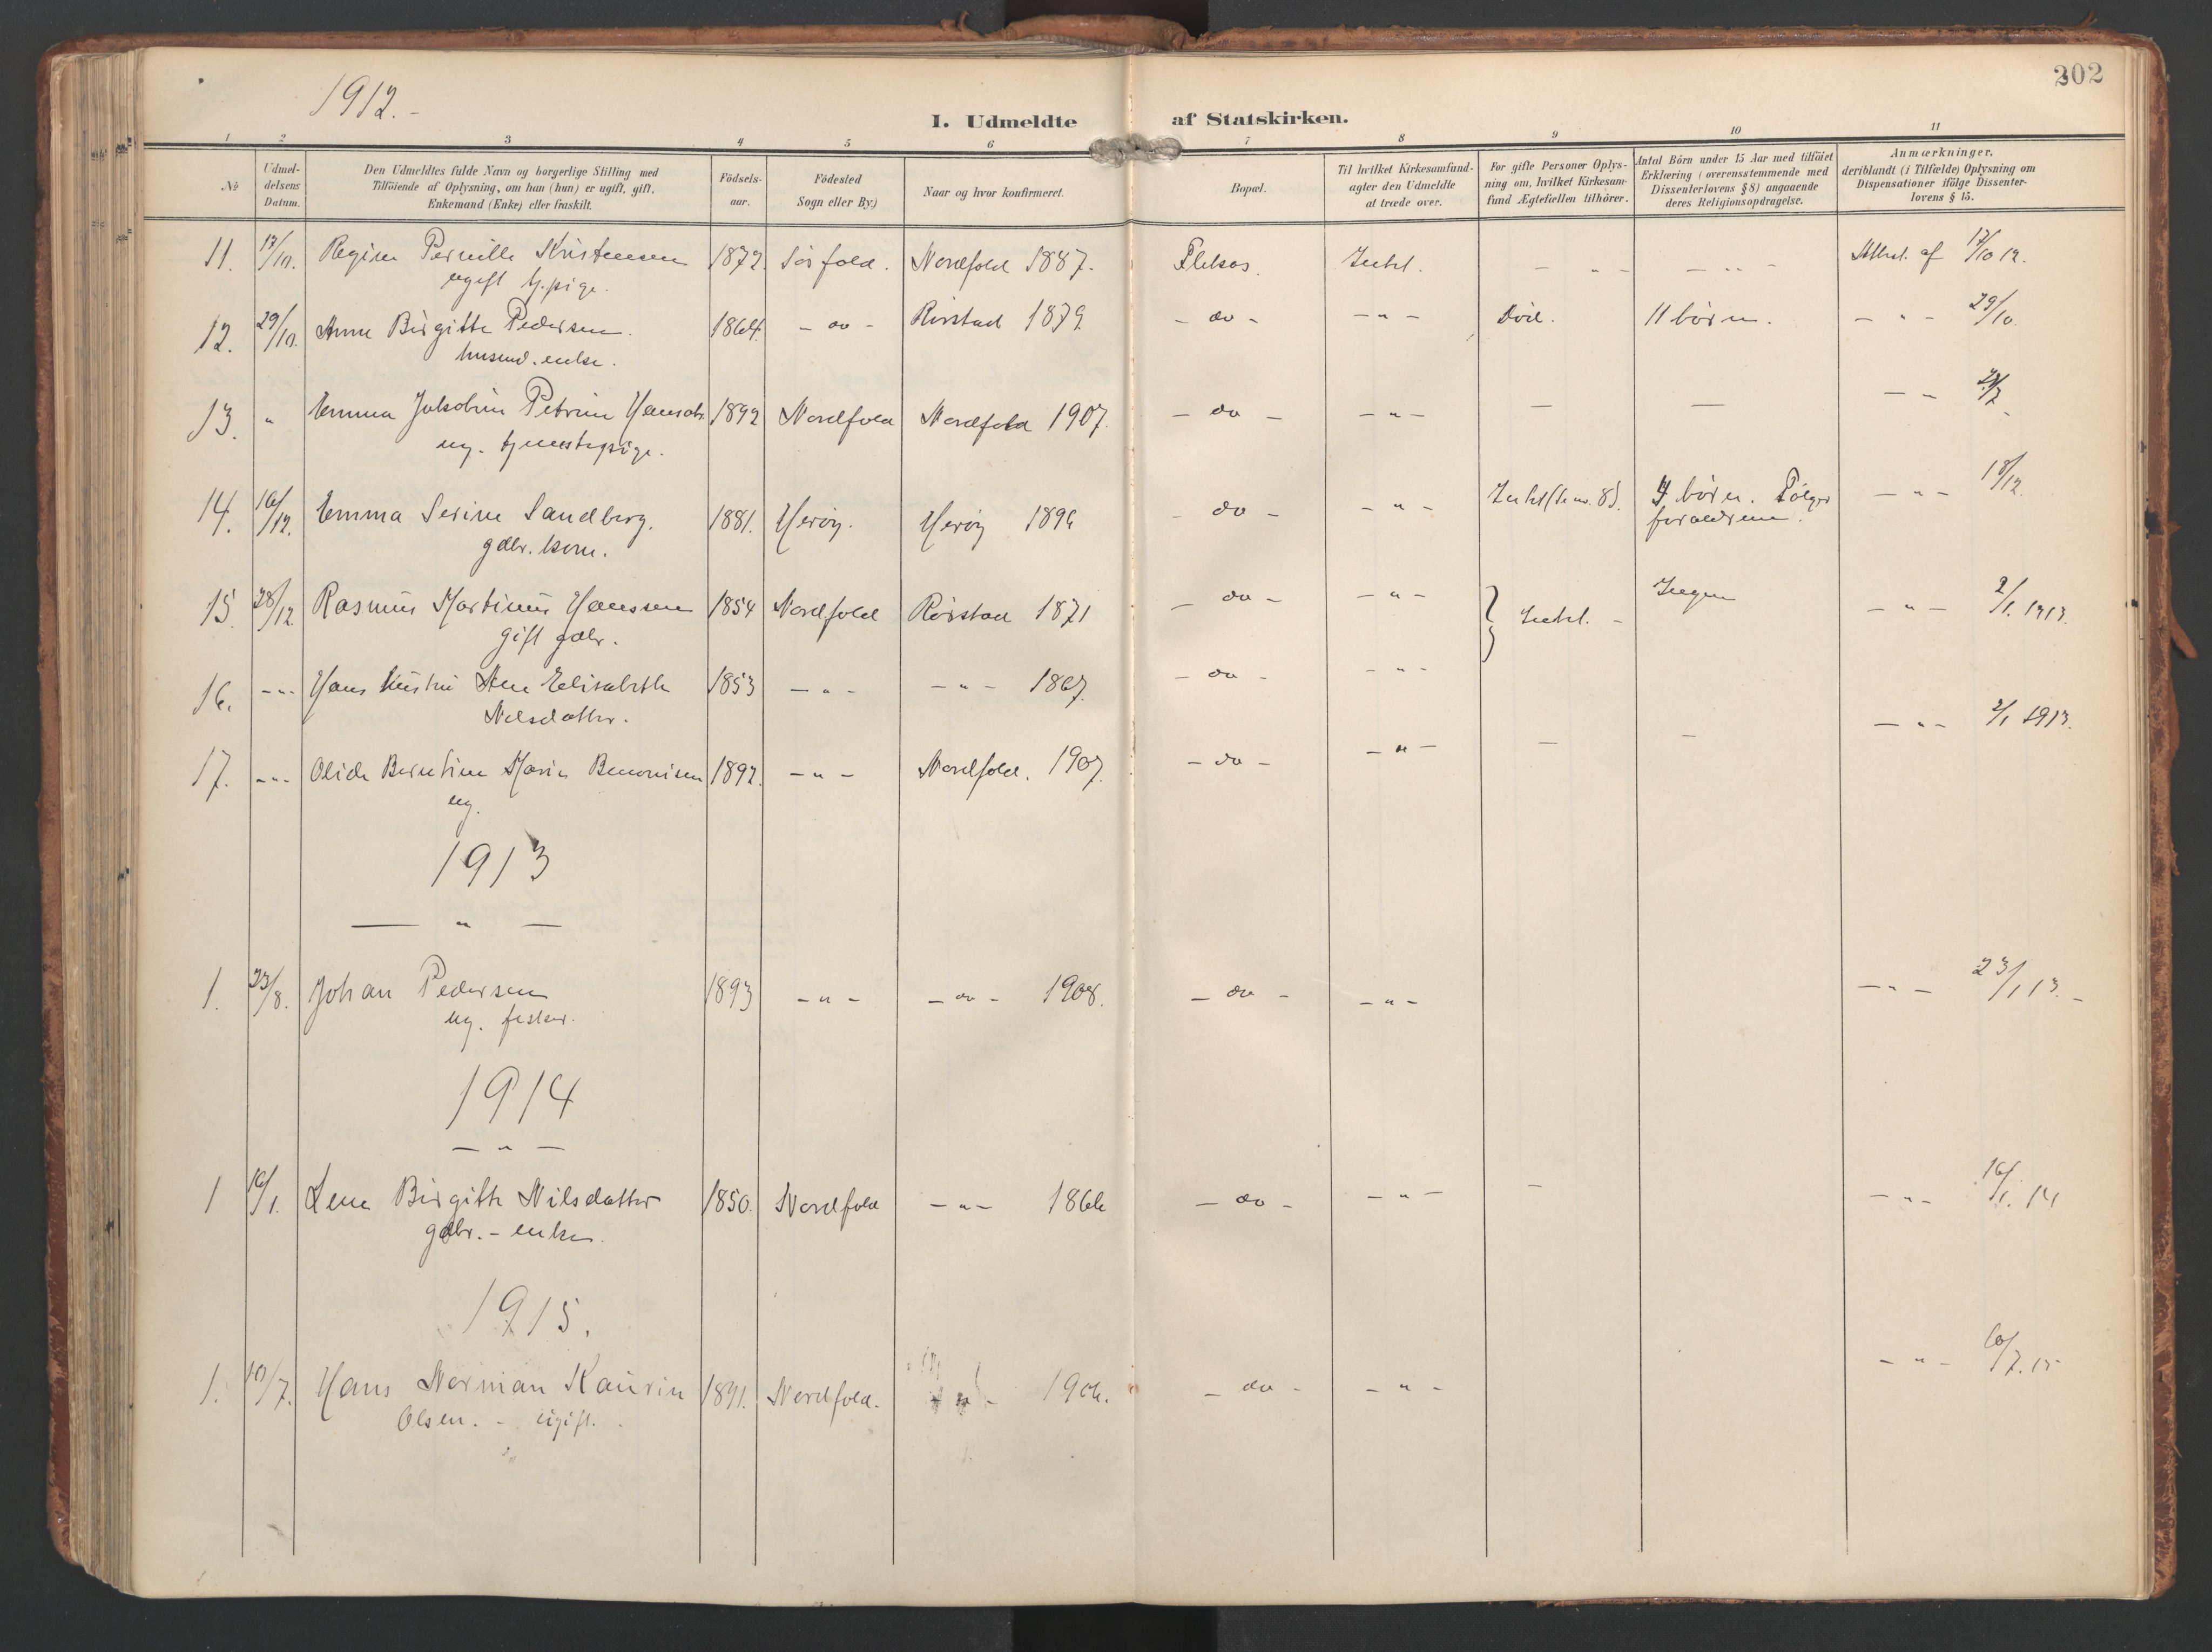 1912.-
302
1. Udmeldte af Statskirken.
1 2 3 4 5 6 7 8 9 10 11
No
Udmel-
delsens
Datum.
Den Udmeldtes fulde Navn og borgerlige Stilling med
Tilföiende af Oplysning, om han (hun) er ugift, gift,
Enkemand (Enke) eller fraskilt.
Födsels-
aar.
Födested
Sogn eller By.)
Naar og hvor konfirmeret.
Bopæl.
Til hvilket Kirkesamfund-
agter den Udmeldte
at træde over.
For gifte Personer Oplys-
ning om, hvilket Kirkesam-
fund Ægtefællen tilhörer.
Antal Börn under 15 Aar med tilföiet
Erklæring (overensstemmende med
Dissenterlovens § 8) angaaende
deres Religionsopdragelse.
Anmærkninger,
deriblandt (i Tilfælde) Oplysning om
Dispensationer ifölge Dissenter-
lovens § 15.
11. 17/10. Regine Pernille Kristensen 1872. Sörfold. Nordfold 1887. - " - - " - Attest. af 17/10 12.
ugift tj.pige.
12. 29/10. Anne Birgitte Pedersen. 1864. - do - Rörstad 1879. - do - - " - Död. 11 börn. - " - 29/10.
husmd. enke.
13. " Emma Jakobine Petrine 1892 Nordfold Nordfold 1907. - do - - " - - - - "
ug. tjenestepige.
14. 16/12. Emma Serine Sandberg. 1881. Heröy. Heröy 1896 - do - - " - 4 börn. Fölger - " - 18/12.
gdbr. kone. forældrene.
15. 28/12. Rasmus Martinus Hanssen 1854 Nordfold Rörstad 1871 - do - - " - } Ingen - " - 2/1. 1913.
gift gdbr.
16. - " - Hans hustru Ane Elisabeth 1853 - " - - " - 1867. - do - - " -
Nilsdatter.
17. - " - Olide Berntine Marie Benonisen 1892. - " - Nordfold. 1907. - do - - " - - - - " - 2/1 1913.
ug.
1913
- " -
1. 23/8. Johan Pedersen 1893 - " - - do - 1908. - do - - " - - " - 23/1 13.-
ug. fisker.
1914
- " -
1 16/1. Lena Birgitte Nilsdatter 1850. Nordfold - " - 1866 - do - - " - - - " - 16/1. 14
gdbr. - enke.
1915.
1. 10/7. Hans Norman Kaurin 1891. Nordfold. - " - 1906. - do - - " - - " - 10/7. 15
Olsen. - ugift.